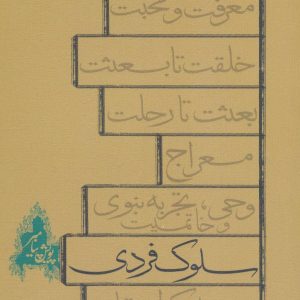 معرفت و محبت
خلقت تا بعثت
بعثت تا رحلت
معراج
وحی، تجربه نبوی
و خاتمیت
سلوک فردی